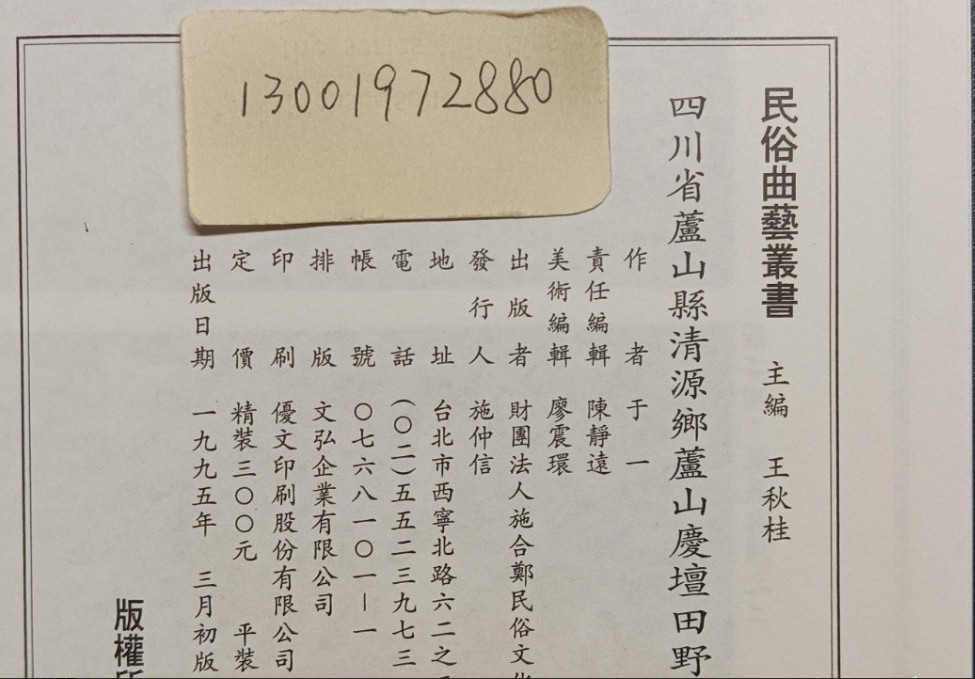 13001972880
民俗曲藝叢書 主編 王秋桂
四川省蘆山縣清源鄉蘆山慶壇田野
作者 于一
責任編輯 陳靜遠
美術編輯 廖震環
出版者 財團法人施合鄭民俗文
發行人 施仲信
地址 台北市西寧北路六二之
電話 (〇二)五五二三九七三
帳號 〇七六八一〇一－一
排版 文弘企業有限公司
印刷 優文印刷股份有限公司
定價 精裝三〇〇元 平裝
出版日期 一九九五年 三月初版
版權